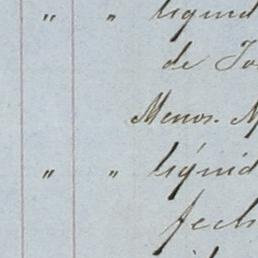 " " liquid
de
Menos.
" " líquid
fech